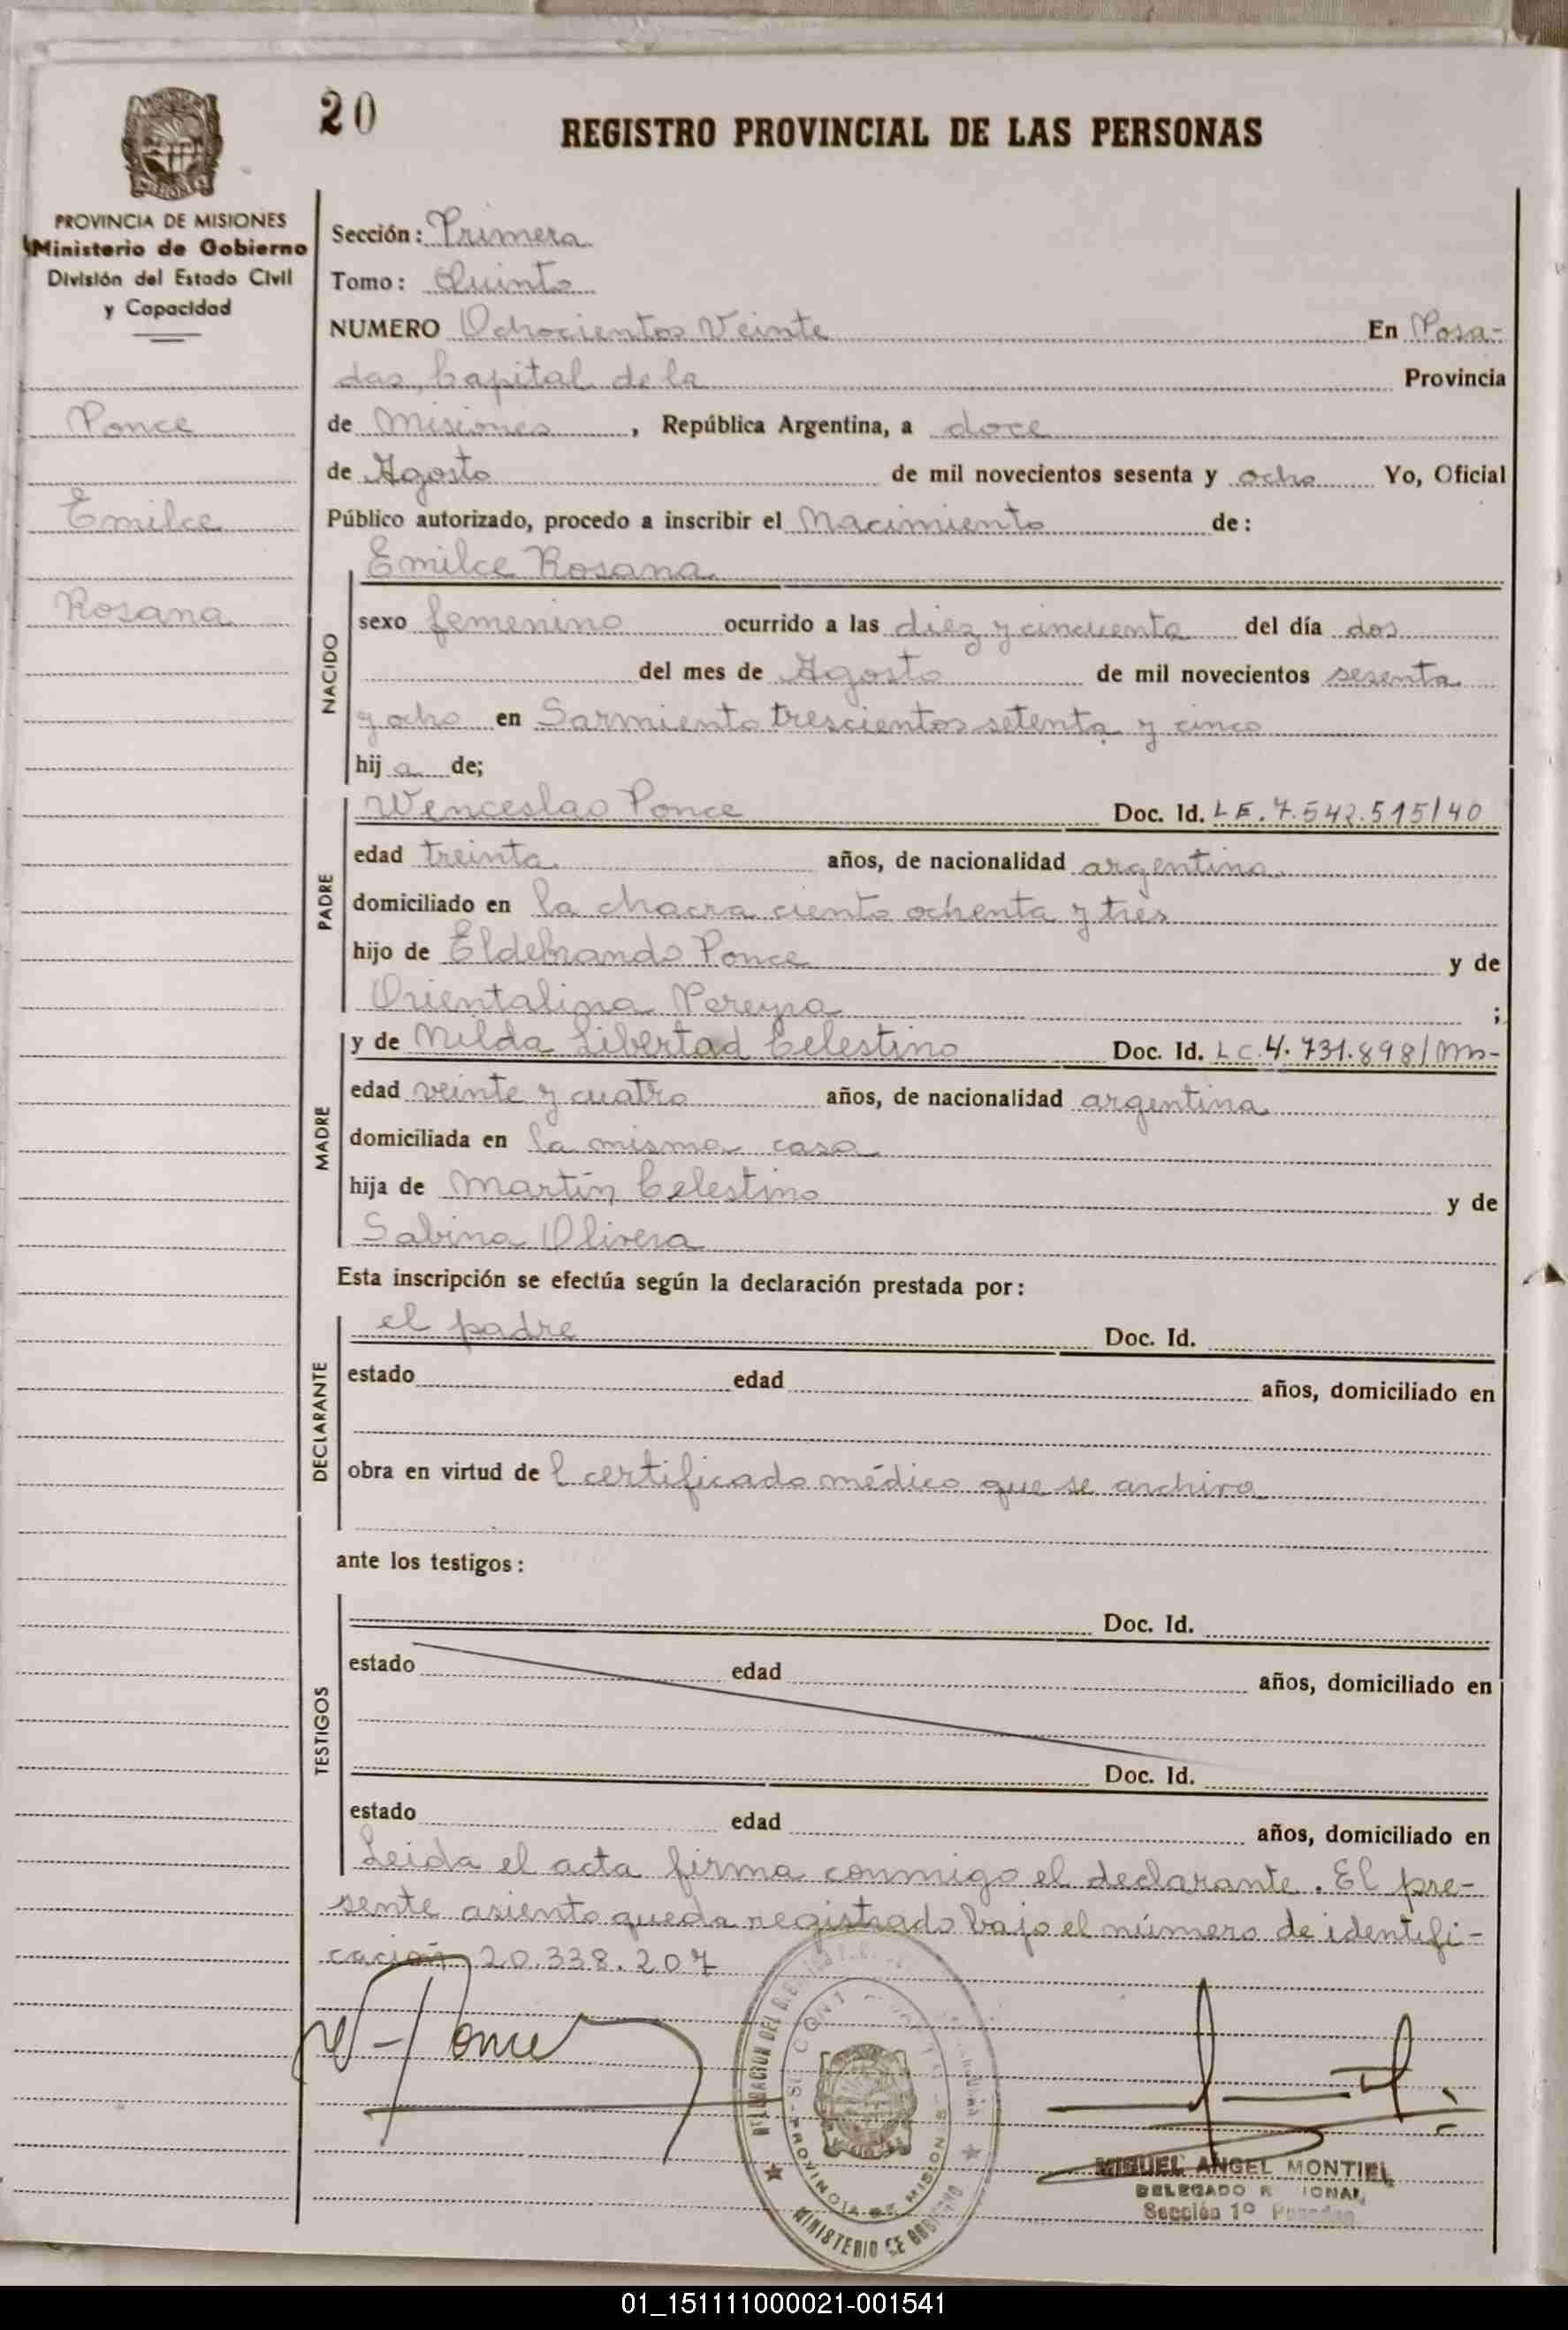 20
REGISTRO PROVINCIAL DE LAS PERSONAS
PROVINCIA DE MISIONES
Ministerio de Gobierno
División del Estado Civil
y Capacidad
Ponce
Emilce
Rosana
Sección: Primera
Tomo: Quinto
NUMERO Ochocientos Veinte En Posa-
das, Capital de la Provincia
de Misiones, República Argentina, a doce
de Agosto de mil novecientos sesenta y ocho Yo, Oficial
Público autorizado, procedo a inscribir el Nacimiento de:
NACIDO
Emilce Rosana
sexo femenino ocurrido a las diez y cincuenta del día dos
del mes de Agosto de mil novecientos sesenta
y ocho en Sarmiento trescientos setenta y cinco
hij a de;
PADRE
Wenceslao Ponce Doc. Id. LE. 7.542.515/40
edad treinta años, de nacionalidad argentina
domiciliado en la chacra ciento ochenta y tres
hijo de Eldebrando Ponce y de
Orientalina Pereyra ;
MADRE
y de Nilda Libertad Celestino Doc. Id. LC. 4.731.898/Mns-
edad veinte y cuatro años, de nacionalidad argentina
domiciliada en la misma casa
hija de Martín Celestino y de
Sabina Olivera
Esta inscripción se efectúa según la declaración prestada por:
DECLARANTE
el padre Doc. Id.
estado edad años, domiciliado en
obra en virtud de l certificado médico que se archiva
ante los testigos:
TESTIGOS
Doc. Id.
estado edad años, domiciliado en
Doc. Id.
estado edad años, domiciliado en
Leida el acta firma conmigo el declarante. El pre-
sente asiento queda registrado bajo el número de identifi-
cación 20.338.207
W-Ponce
PROVINCIA DE MISIONES
MINISTERIO DE GOBIERNO
MIGUEL ANGEL MONTIEL
DELEGADO
Sección 1º Posadas
01_151111000021-001541